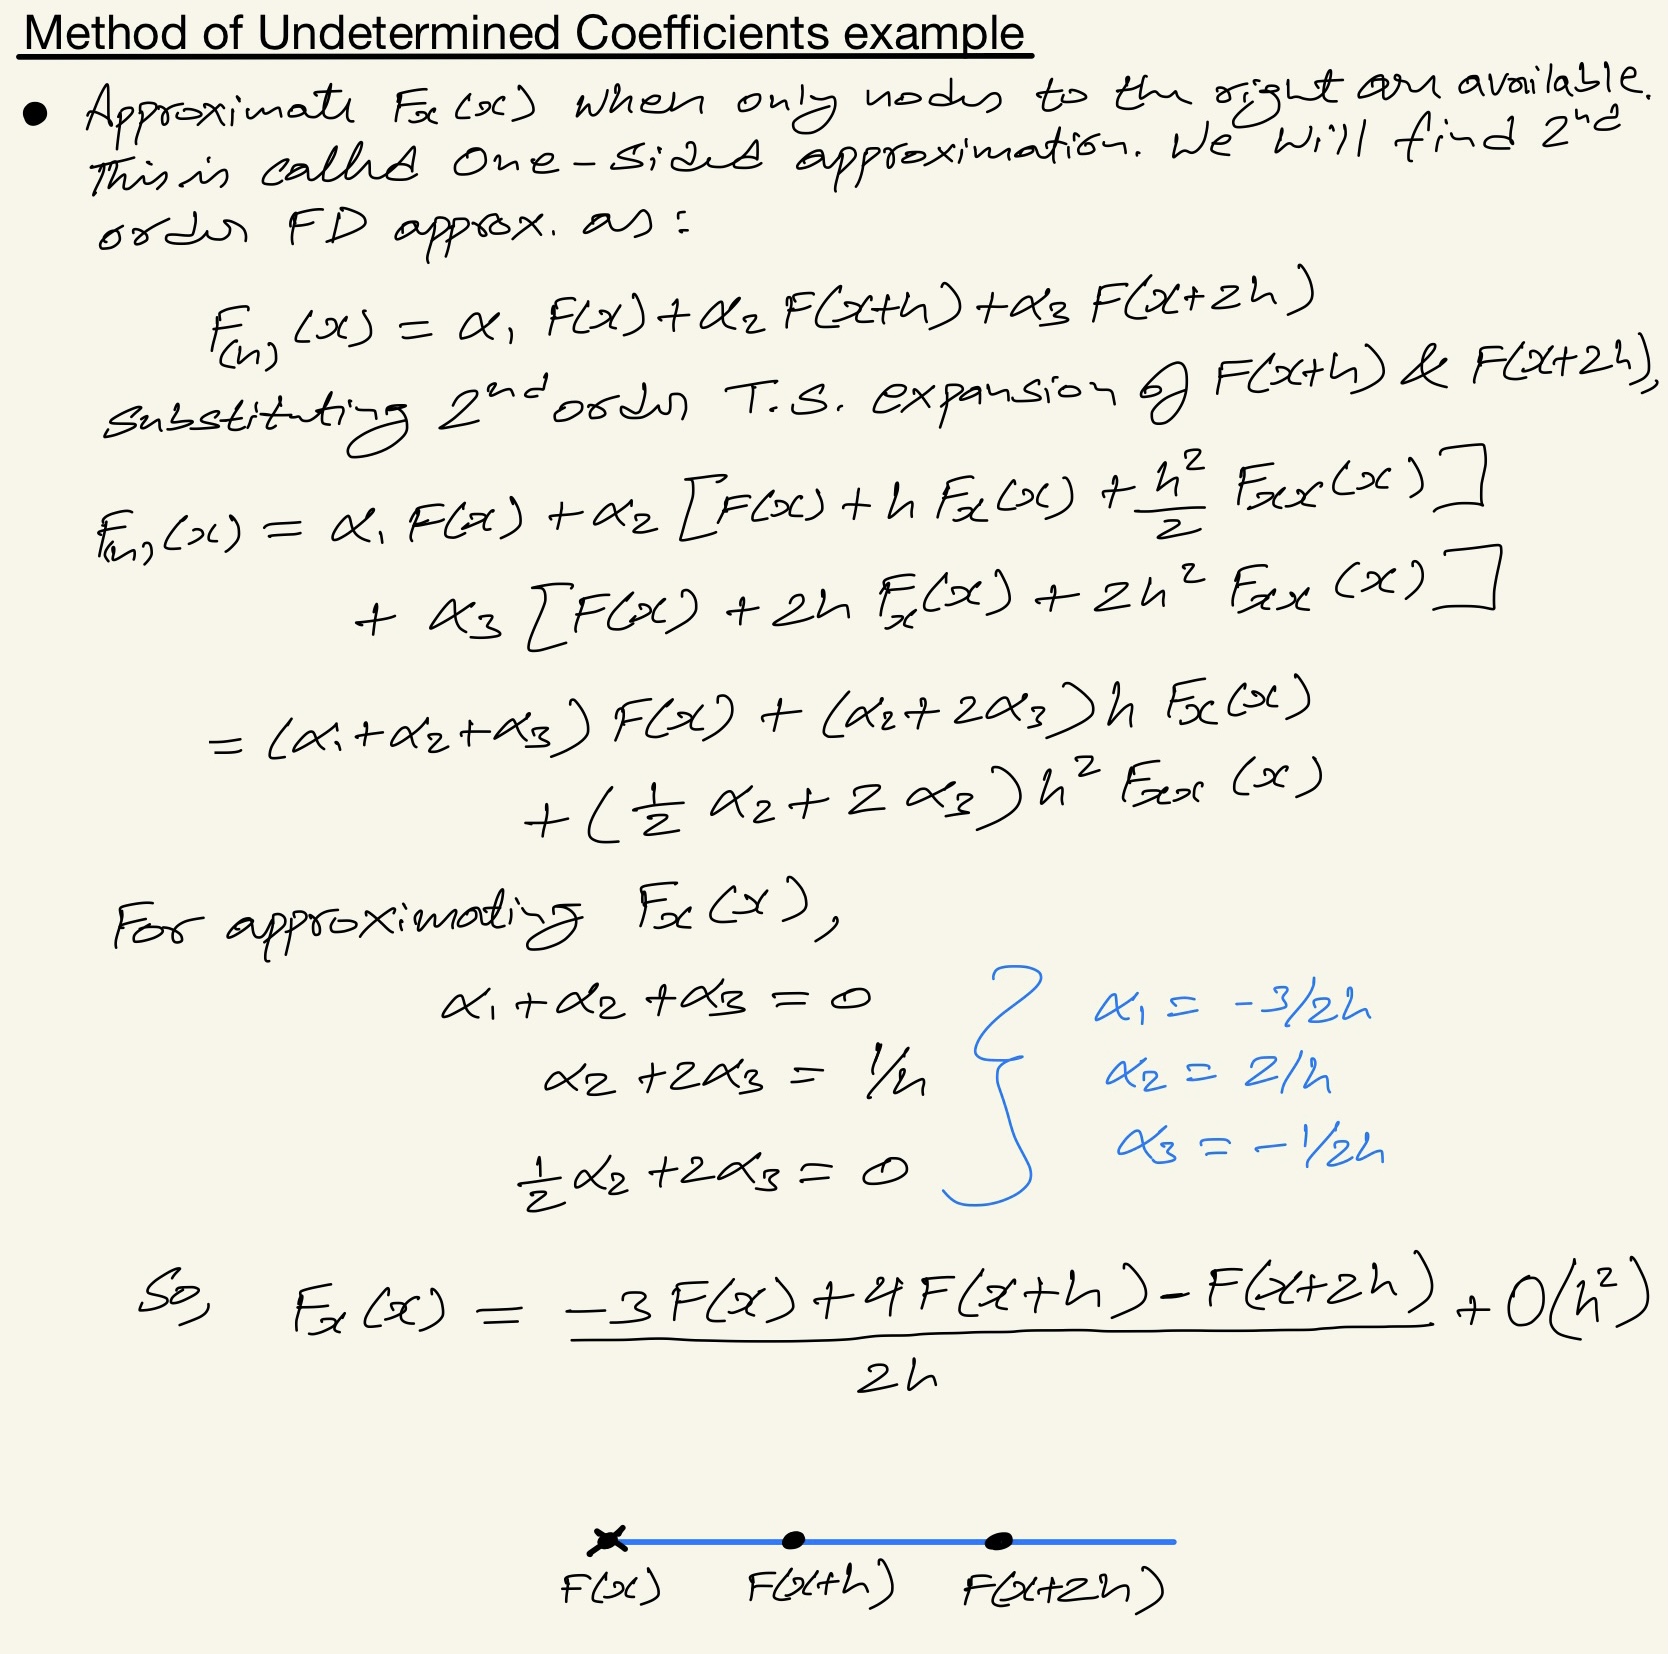 Method of Undetermined Coefficients example
• Approximate Fₓ(x) when only nodes to the right are available.
This is called One-sided approximation. We will find 2ⁿᵈ
order FD approx. as:
F₍ₙ₎(x) = α₁ F(x) + α₂ F(x+h) + α₃ F(x+2h)
substituting 2ⁿᵈ order T.S. expansion of F(x+h) & F(x+2h),
F₍ₙ₎(x) = α₁ F(x) + α₂ [F(x) + h Fₓ(x) + h²/2 Fₓₓ(x)]
+ α₃ [F(x) + 2h Fₓ(x) + 2h² Fₓₓ(x)]
= (α₁+α₂+α₃) F(x) + (α₂+2α₃) h Fₓ(x)
+ (1/2 α₂ + 2 α₃) h² Fₓₓ(x)
For approximating Fₓ(x),
α₁ + α₂ + α₃ = 0
α₂ + 2α₃ = 1/h
1/2 α₂ + 2α₃ = 0
α₁ = -3/2h
α₂ = 2/h
α₃ = -1/2h
So, Fₓ(x) = (-3 F(x) + 4 F(x+h) - F(x+2h)) / 2h + O(h²)
F(x) F(x+h) F(x+2h)